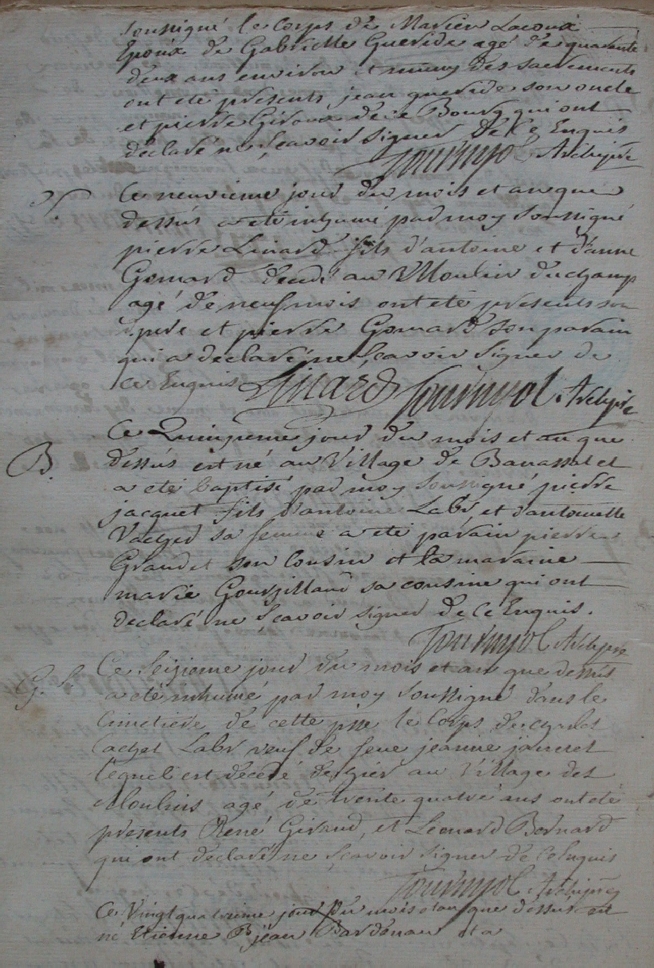 soussigné le corps de Marien Lacoua
Epoux de Gabrielle Gueride agé de quarante
deux ans environ et muny des sacrements
ont eté presents jean gueride son oncle
et pierre Giraud de ce Bourg qui ont
declaré ne sçavoir signer de ce Enquis
Tournyol Archiptre
Ce neuvieme jour du mois et an que
dessus a eté inhumé par moy soussigné
pierre Linard fils d'antoine et d'anne
Gomard decedé au Moulin du champ
agé de neuf mois ont eté presents son
pere et pierre Gomard son parain
qui a declaré ne sçavoir signer de
ce Enquis Linard Tournyol Archiptre
B.
Ce Quinzieme jour du mois et an que
dessus est né au Village de Banassat et
a eté baptisé par moy soussigné pierre
jacquet fils d'antoine Labr et d'antoinette
Vacher sa femme a eté parain pierre
Grandet son cousin et la maraine
marie sa cousine qui ont
declaré ne sçavoir signer de ce Enquis.
Tournyol Archiptre
G. S.
Ce seizieme jour du mois et an que dessus
a eté inhumé par moy soussigné dans le
cimetiere de cette psse le corps de
Labr veuf de feue jeanne
lequel est decedé d'hier au Village des
Moulins agé de trente quatre ans ont eté
presents René Giraud, et Leonard Bernard
qui ont declaré ne sçavoir signer de ce Enquis
Tournyol Archiptre
Ce Vingt quatrieme jour du mois et an que dessus est
né Etienne jean Bardonau et a